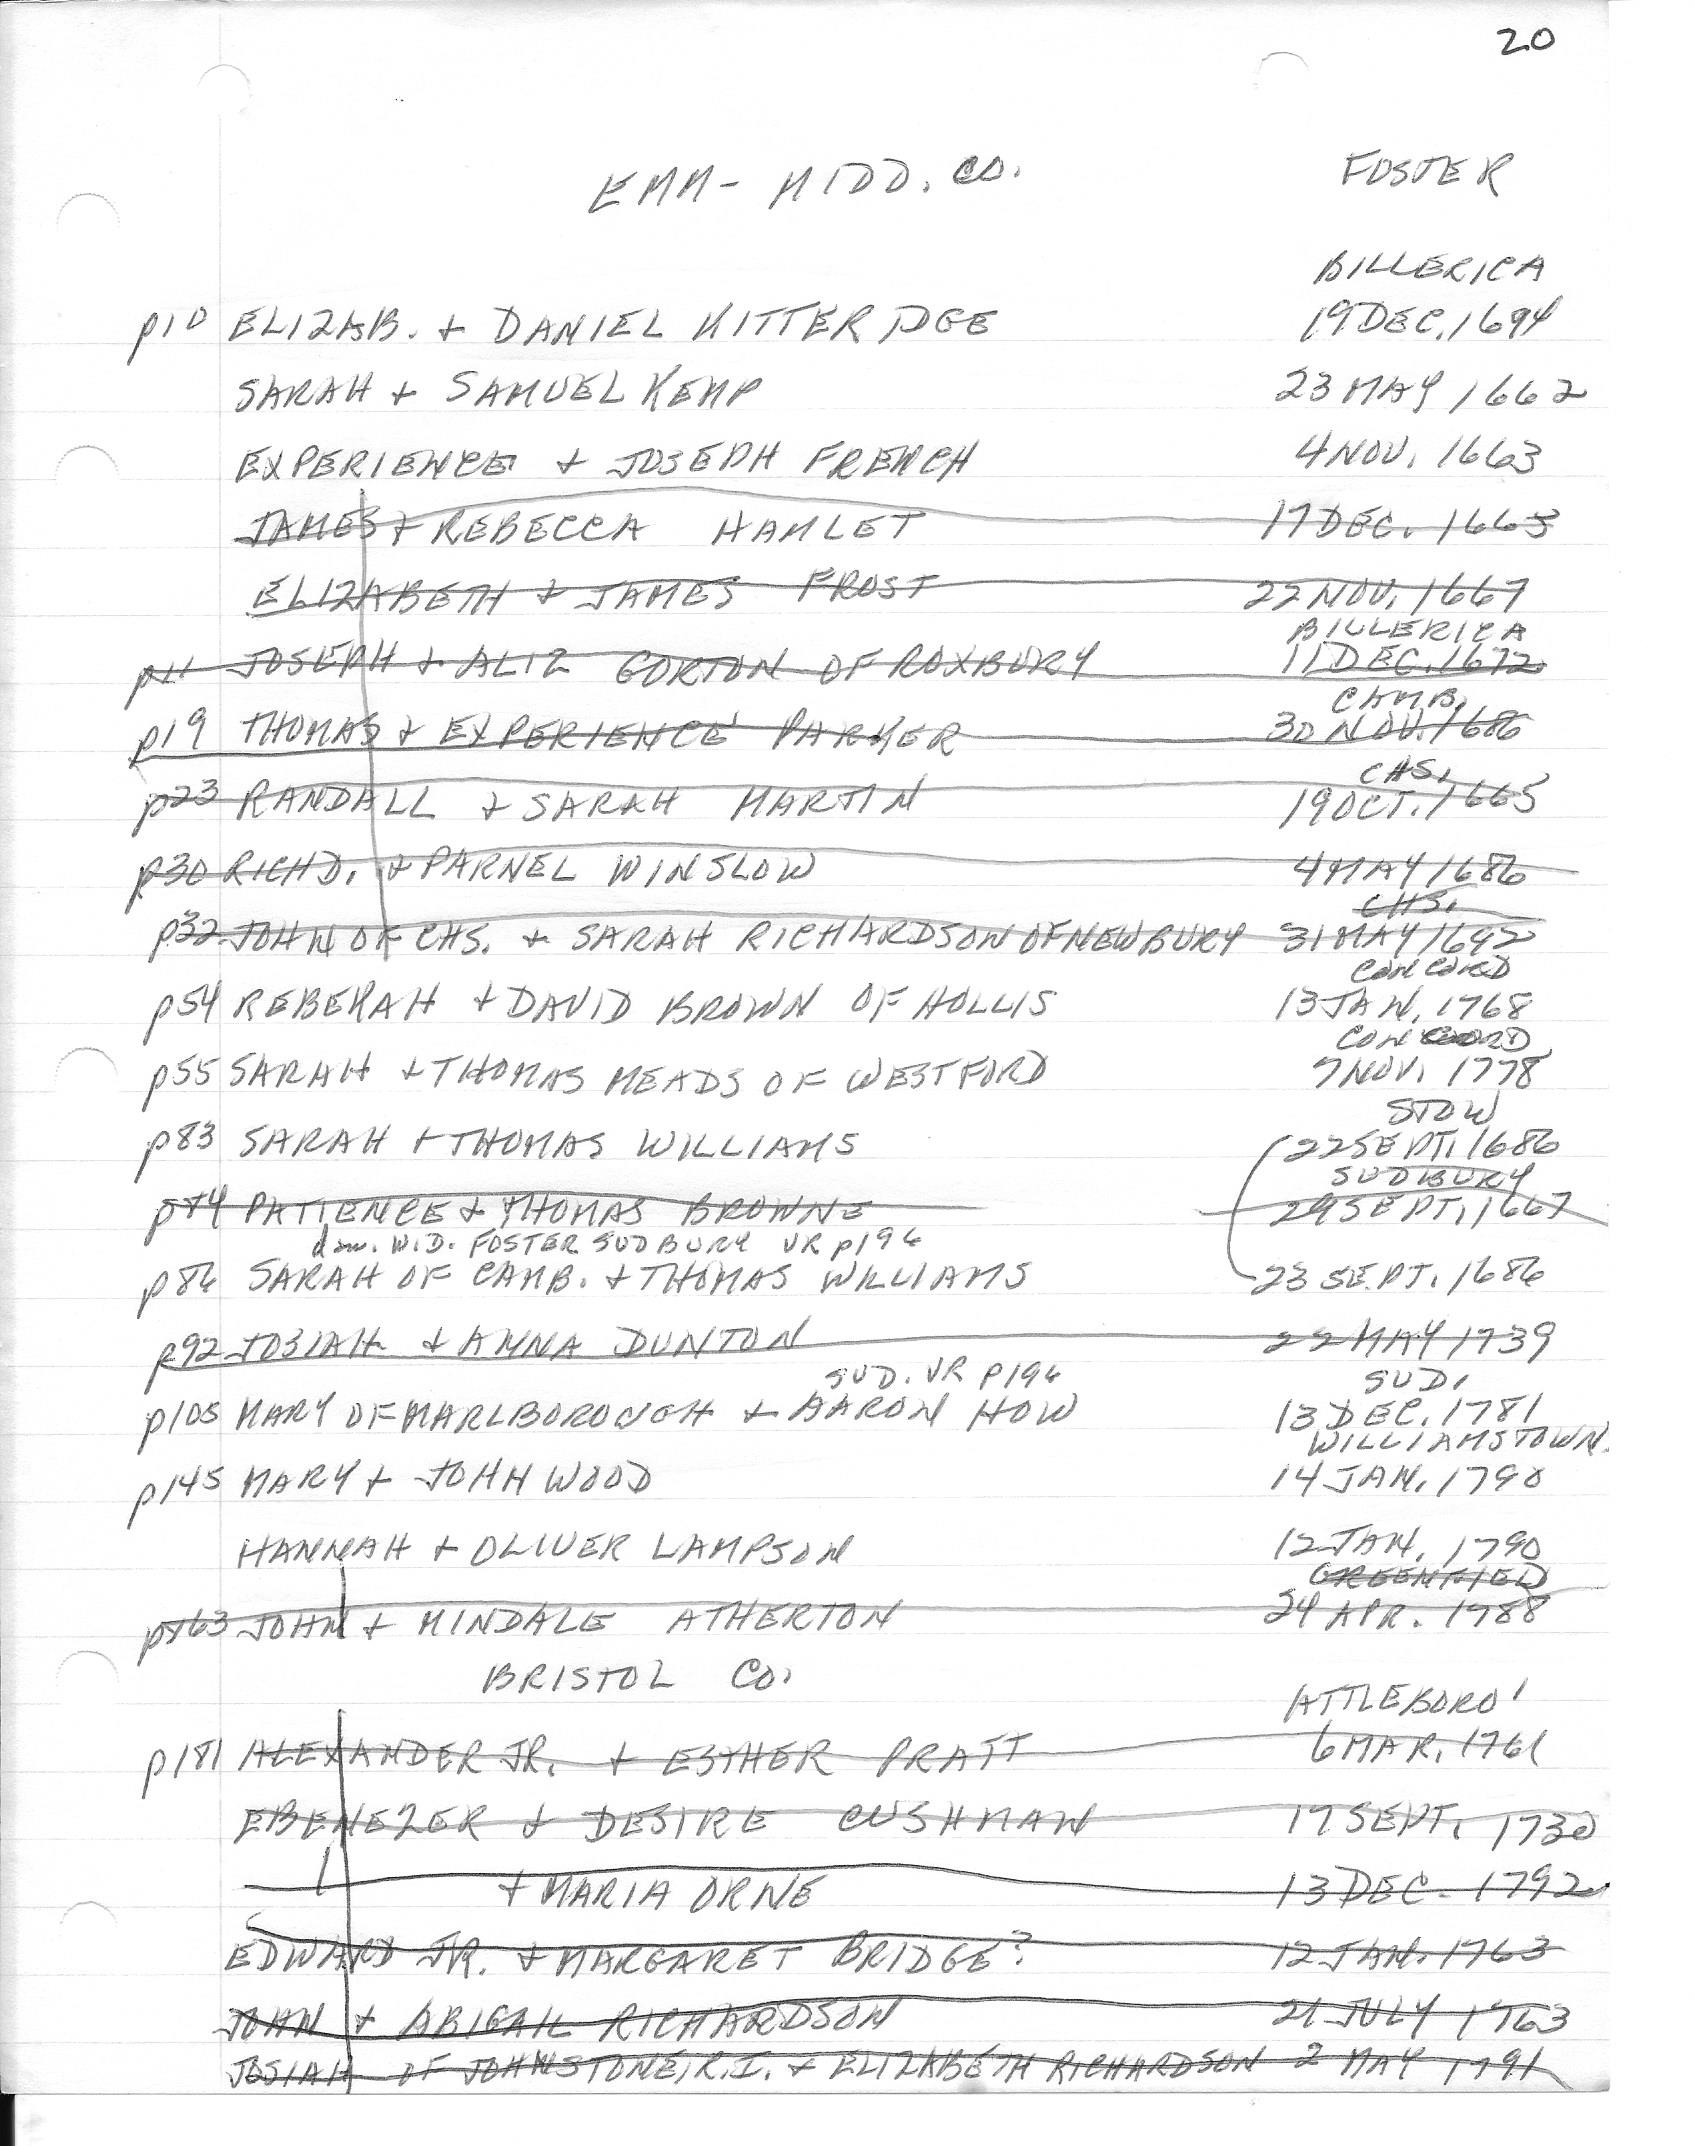 20
EMM - MIDD. CO. FOSTER
BILLERICA
p10 ELIZAB. + DANIEL KITTERIDGE 19 DEC. 1694
SARAH + SAMUEL KEMP 23 MAY 1662
EXPERIENCE + JOSEPH FRENCH 4 NOV. 1663
JAMES + REBECCA HAMLET 17 DEC. 1665
ELIZABETH + JAMES FROST 22 NOV. 1667
BILLERICA
p11 JOSEPH + ALIZ GORTON OF ROXBURY 11 DEC. 1672
CAMB.
p19 THOMAS + EXPERIENCE PARKER 30 NOV. 1686
CHS.
p23 RANDALL + SARAH MARTIN 19 OCT. 1665
p30 RICHD. + PARNEL WINSLOW 4 MAY 1686
CHS.
p32 JOHN OF CHS. + SARAH RICHARDSON OF NEWBURY 31 MAY 1692
CONCORD
p54 REBEKAH + DAVID BROWN OF HOLLIS 13 JAN. 1768
CONCORD
p55 SARAH + THOMAS MEADS OF WESTFORD 7 NOV. 1778
STOW
p83 SARAH + THOMAS WILLIAMS 22 SEPT. 1686
SUDBURY
p84 PATIENCE + THOMAS BROWNE 29 SEPT. 1667
dau. W.D. FOSTER SUDBURY VR p196
p86 SARAH OF CAMB. + THOMAS WILLIAMS 23 SEPT. 1686
p92 JOSIAH + ANNA DUNTON 22 MAY 1739
SUD. VR P196 SUD.
p105 MARY OF MARLBOROUGH + AARON HOW 13 DEC. 1781
WILLIAMSTOWN.
p145 MARY + JOHN WOOD 14 JAN. 1790
HANNAH + OLIVER LAMPSON 12 JAN. 1790
GREENFIELD
p163 JOHN + MINDALE ATHERTON 24 APR. 1788
BRISTOL CO.
ATTLEBORO'
p181 ALEXANDER JR. + ESTHER PRATT 6 MAR. 1761
EBENEZER + DESIRE CUSHMAN 17 SEPT. 1730
+ MARIA ORNE 13 DEC. 1792
EDWARD JR. + MARGARET BRIDGE? 12 JAN. 1763
JOHN + ABIGAIL RICHARDSON 21 JULY 1763
JOSIAH OF JOHNSTONE, R.I. + ELIZABETH RICHARDSON 2 MAY 1791